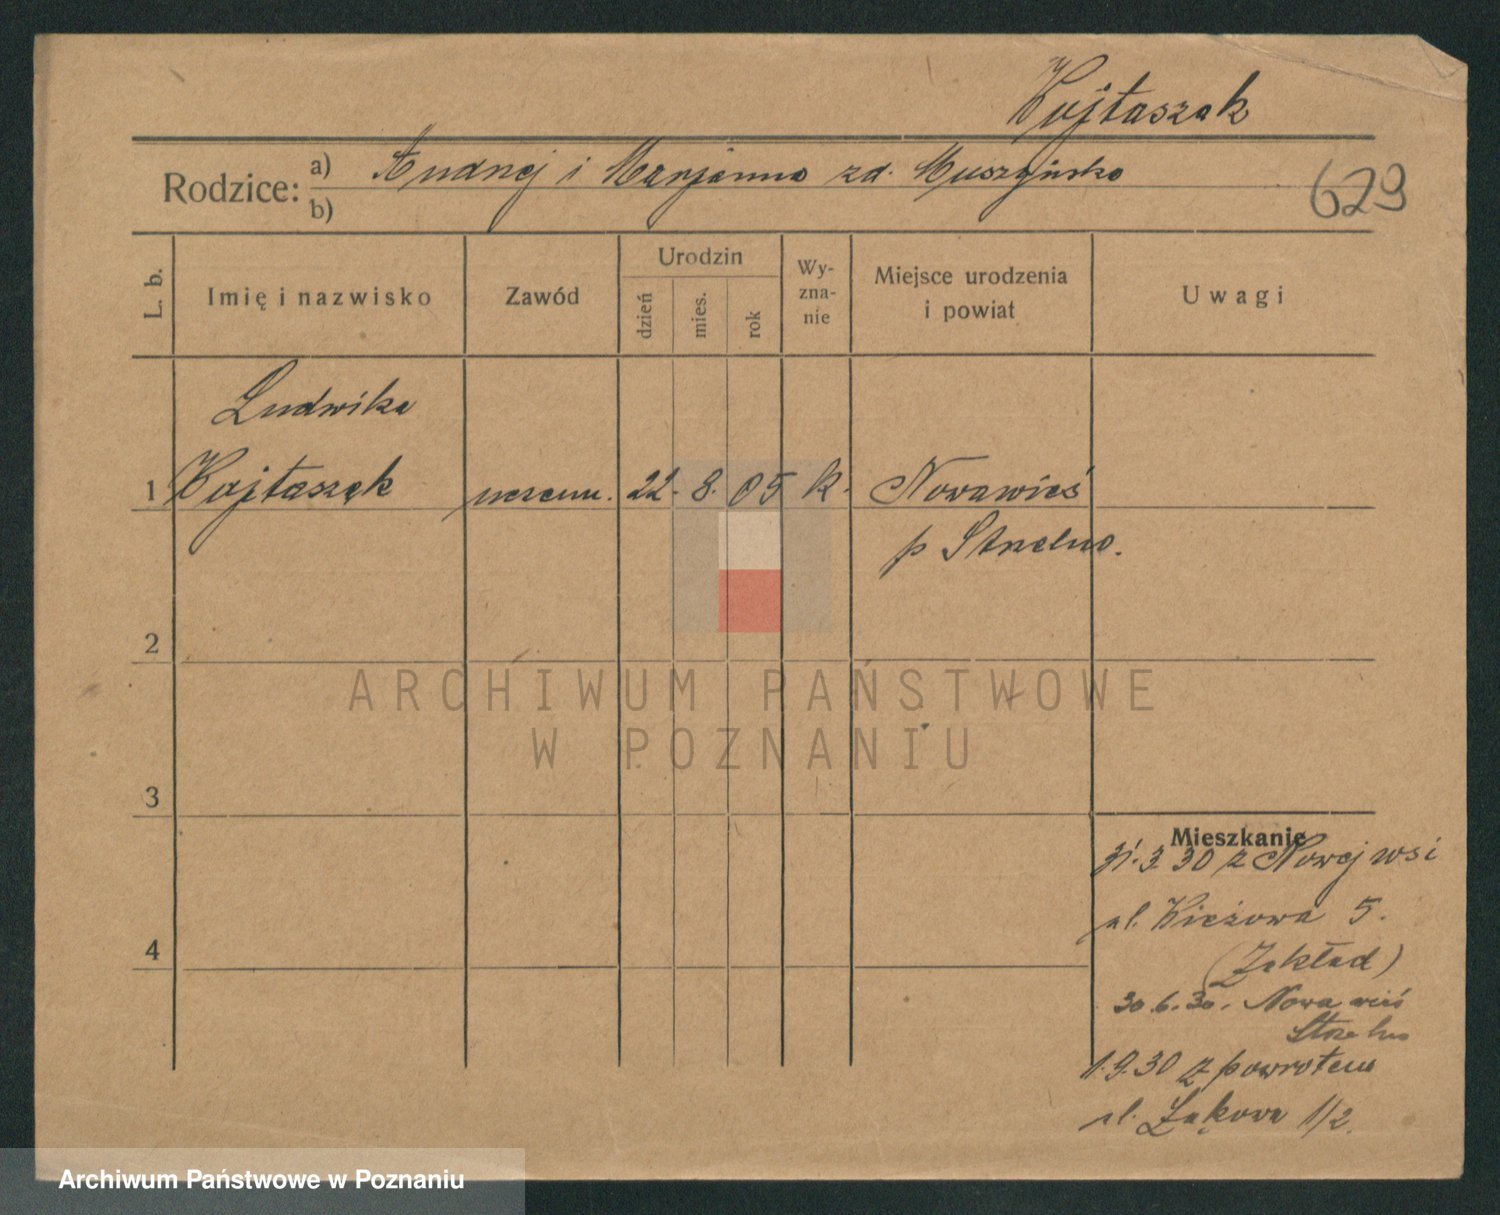 Wojtaszak
Rodzice:
a) Andrzej i Marjanna zd. Muszyńska
b)
629
L. b.
Imię i nazwisko
Zawód
Urodzin
dzień
mies.
rok
Wy-
zna-
nie
Miejsce urodzenia
i powiat
Uwagi
Ludwika
1 Wojtaszak uczenn. 22. 8. 05 k. Nowawieś
p Strzelno.
2
ARCHIWUM PAŃSTWOWE
W POZNANIU
3
Mieszkanie
31.3.30 z Nowej wsi
ul. Wieżowa 5.
(Zakład)
4
30.6.30. Nowa wieś
Strzelno
1.9.30 z powrotem
ul. Łąkowa 1/2.
Archiwum Państwowe w Poznaniu